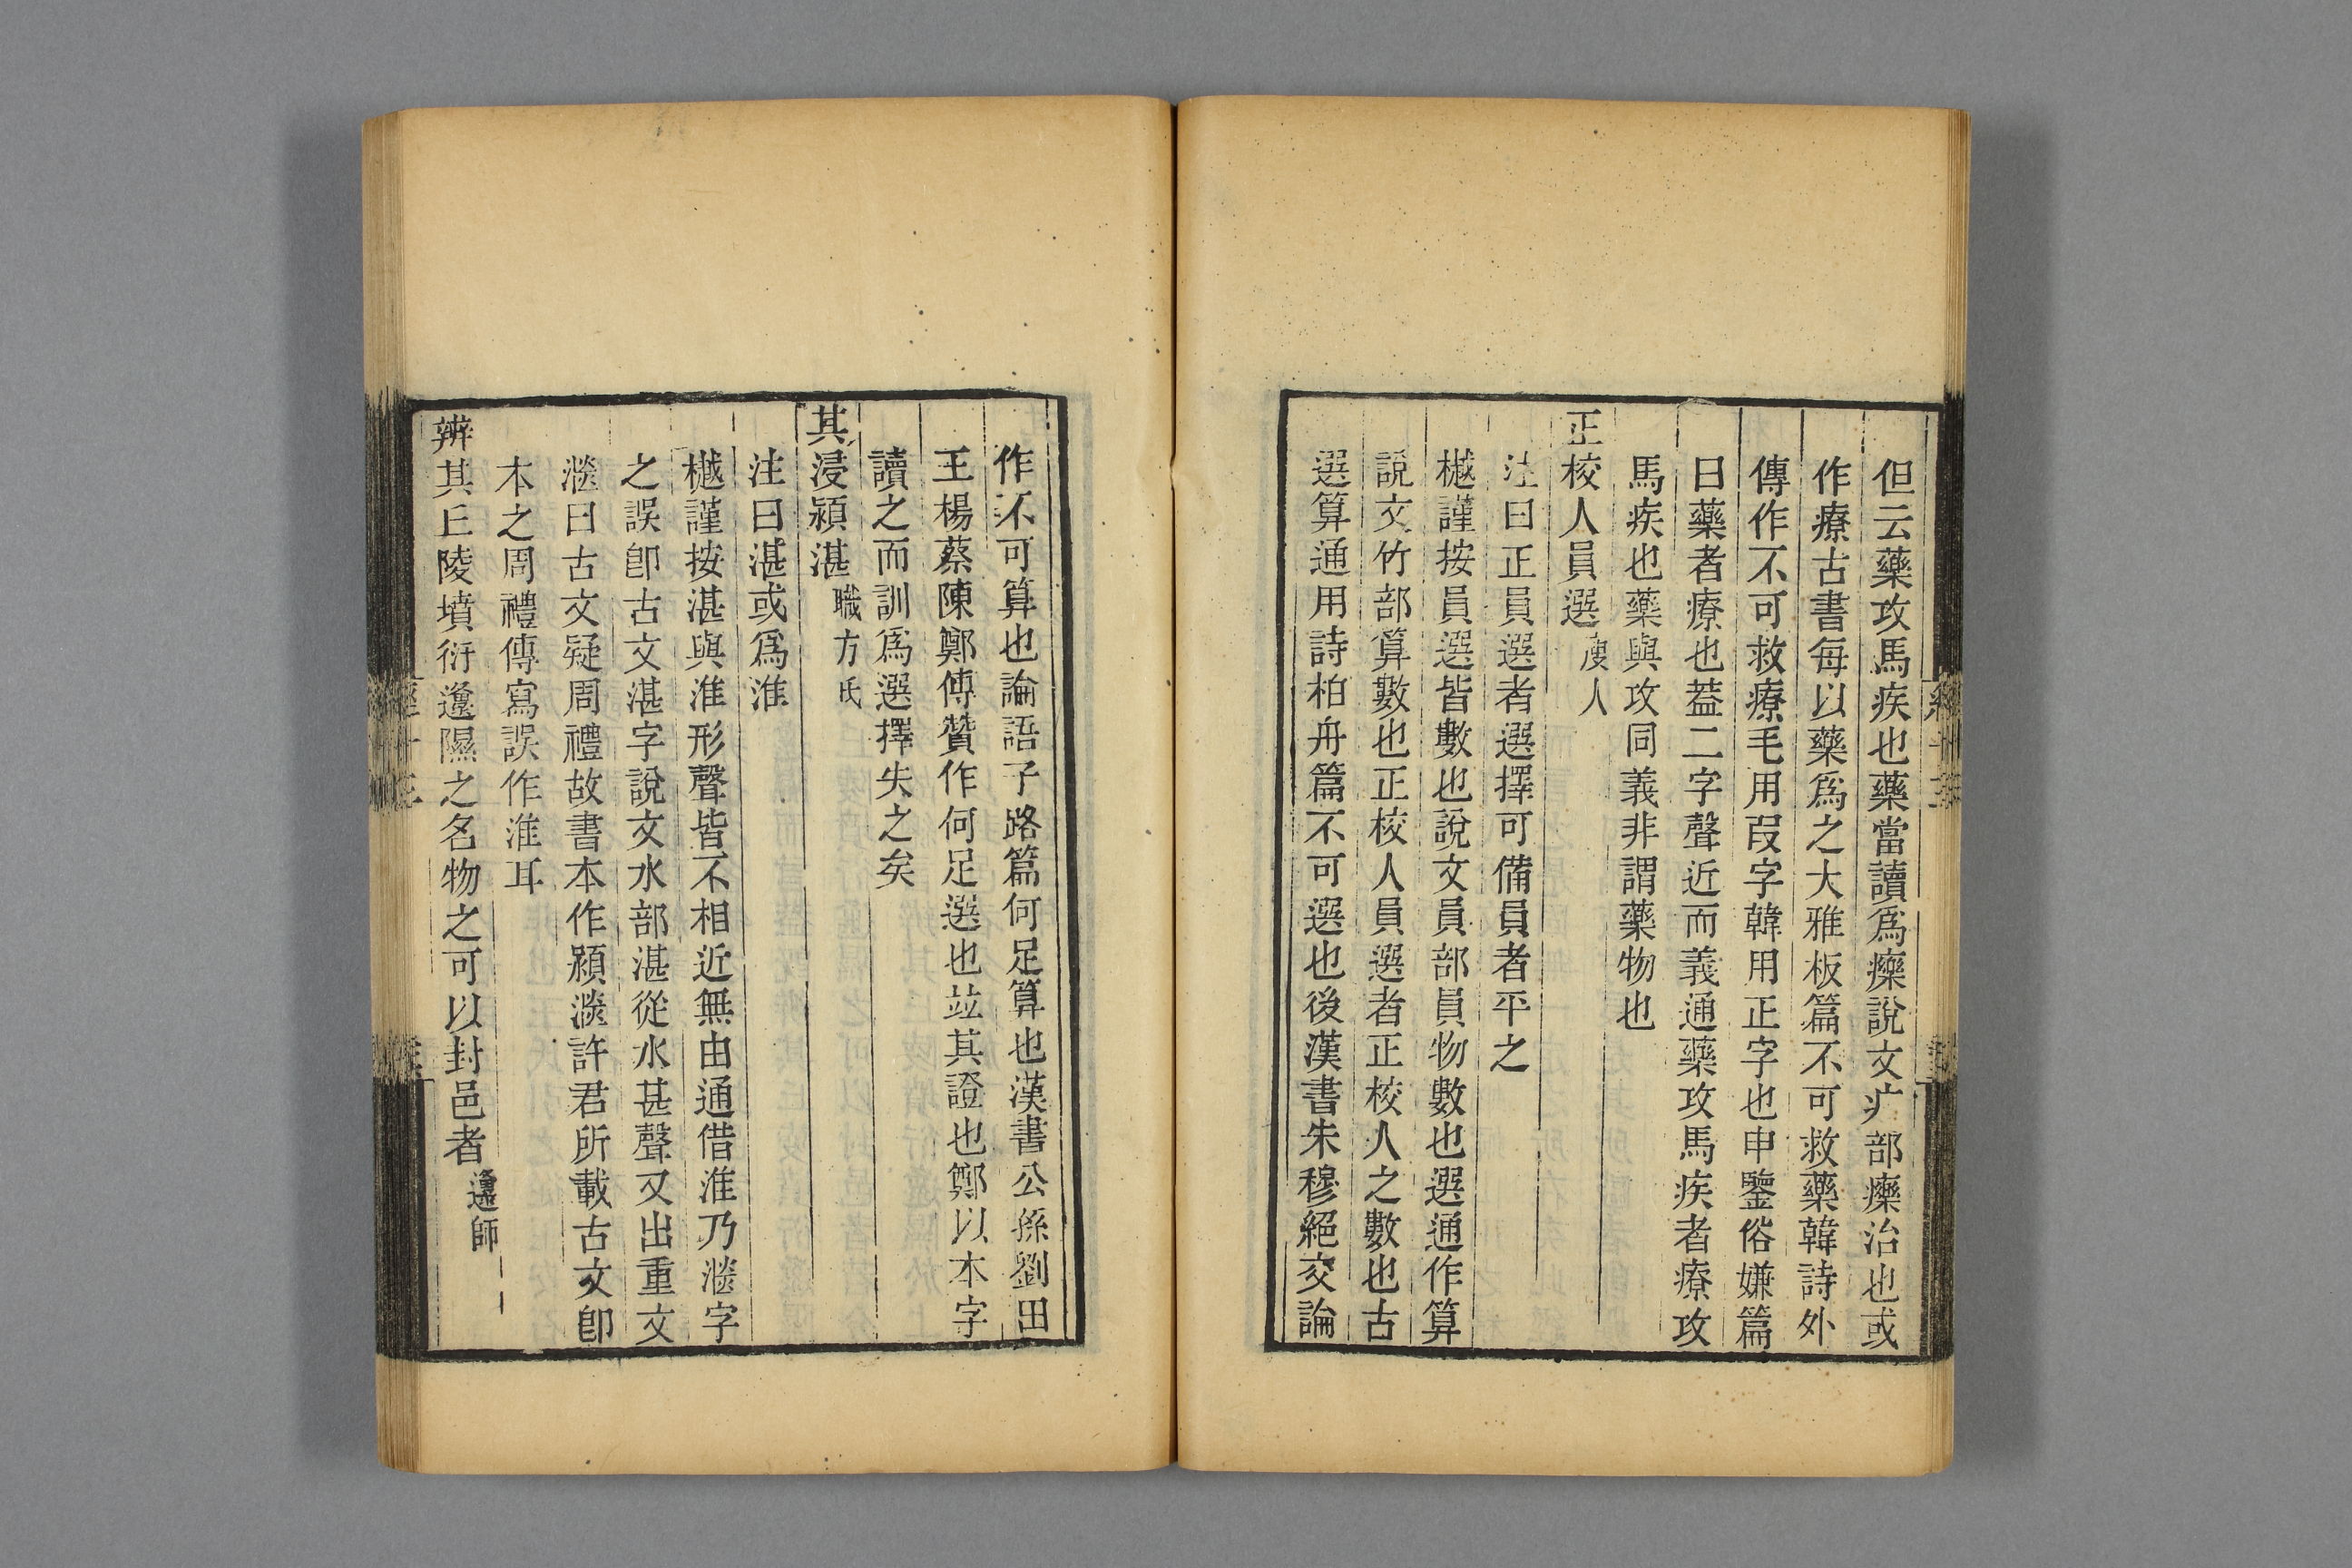 但云藥攻馬疾也藥當讀爲㿋說文疒部㿋治也或
作療古書每以藥爲之大雅板篇不可救藥韓詩外
傳作不可救療毛用叚字韓用正字也申鑒俗嫌篇
曰藥者療也葢二字聲近而義通藥攻馬疾者療攻
馬疾也藥與攻同義非謂藥物也
正校人員選廋人
注曰正員選者選擇可備員者平之
樾謹按員選皆數也說文員部員物數也選通作算
說文竹部算數也正校人員選者正校人之數也古
選算通用詩柏舟篇不可選也後漢書朱穆絕交論
作不可算也論語子路篇何足算也漢書公孫劉田
王楊蔡陳鄭傳贊作何足選也竝其證也鄭以本字
讀之而訓爲選擇失之矣
其浸潁湛職方氏
注曰湛或爲淮
樾謹按湛與淮形聲皆不相近無由通借淮乃㴿字
之誤卽古文湛字說文水部湛從水甚聲又出重文
㴿曰古文疑周禮故書本作潁㴿許君所載古文卽
本之周禮傳寫誤作淮耳
辨其丘陵墳衍邍隰之名物之可以封邑者邍師